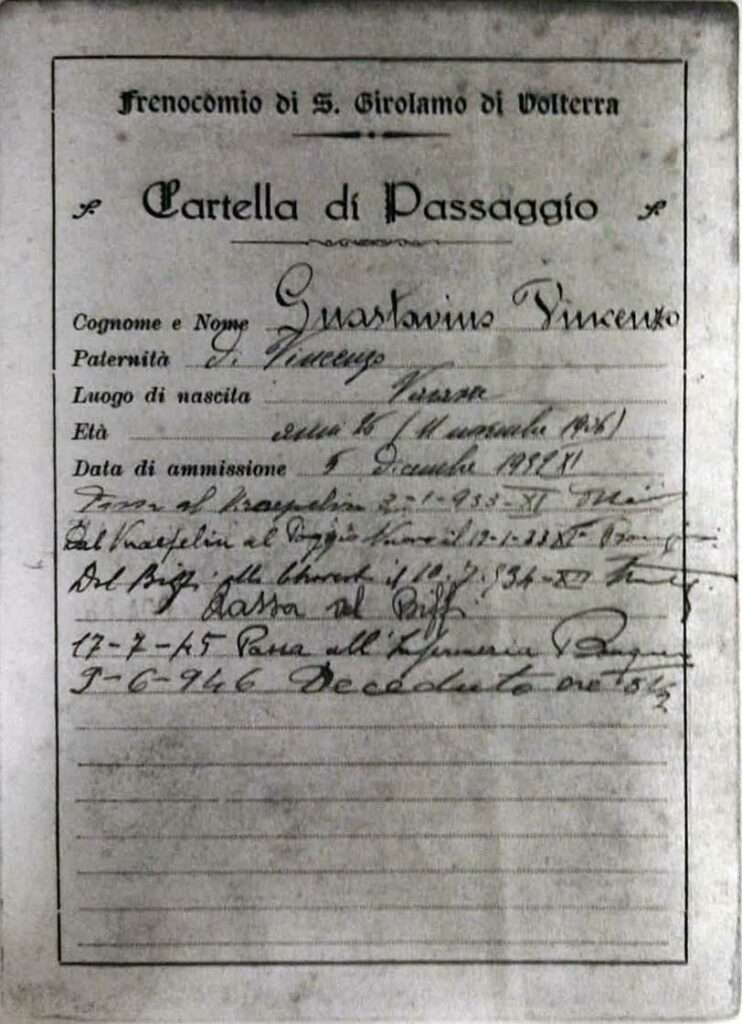 Frenocomio di S. Girolamo di Volterra
Cartella di Passaggio
Cognome e Nome Vincenzo
Paternità di Vincenzo
Luogo di nascita
Età anni 26 (11 novembre
Data di ammissione 5 Dicembre XI
Passa al Kraepelin 2-1-933-XI
Dal Kraepelin al Poggio Nuovo il XI
Dal Biffi allo Charcot il 10-7-934-XII
Passa al Biffi
17-7-45 Passa all'Infermeria
9-6-946 Deceduto ore